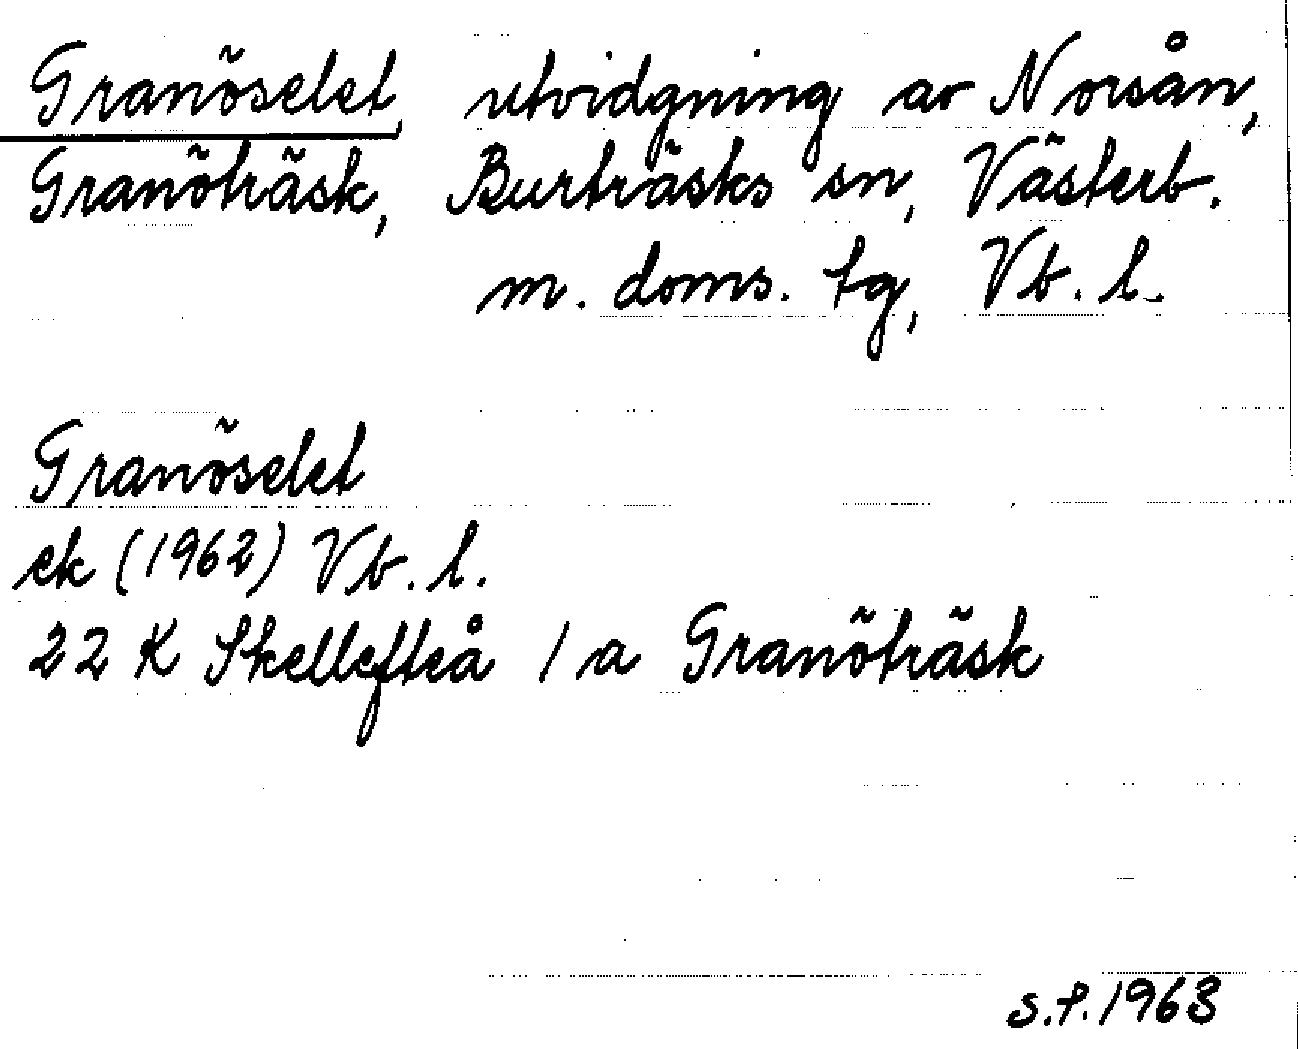 Granöselet, utvidgning av Norsån,
Granöträsk, Burträsks sn, Västerb.
m. doms. tg, Vb. l.
Granöselet
ek (1962) Vb. l.
22 K Skellefteå 1 a Granöträsk
S.P. 1963